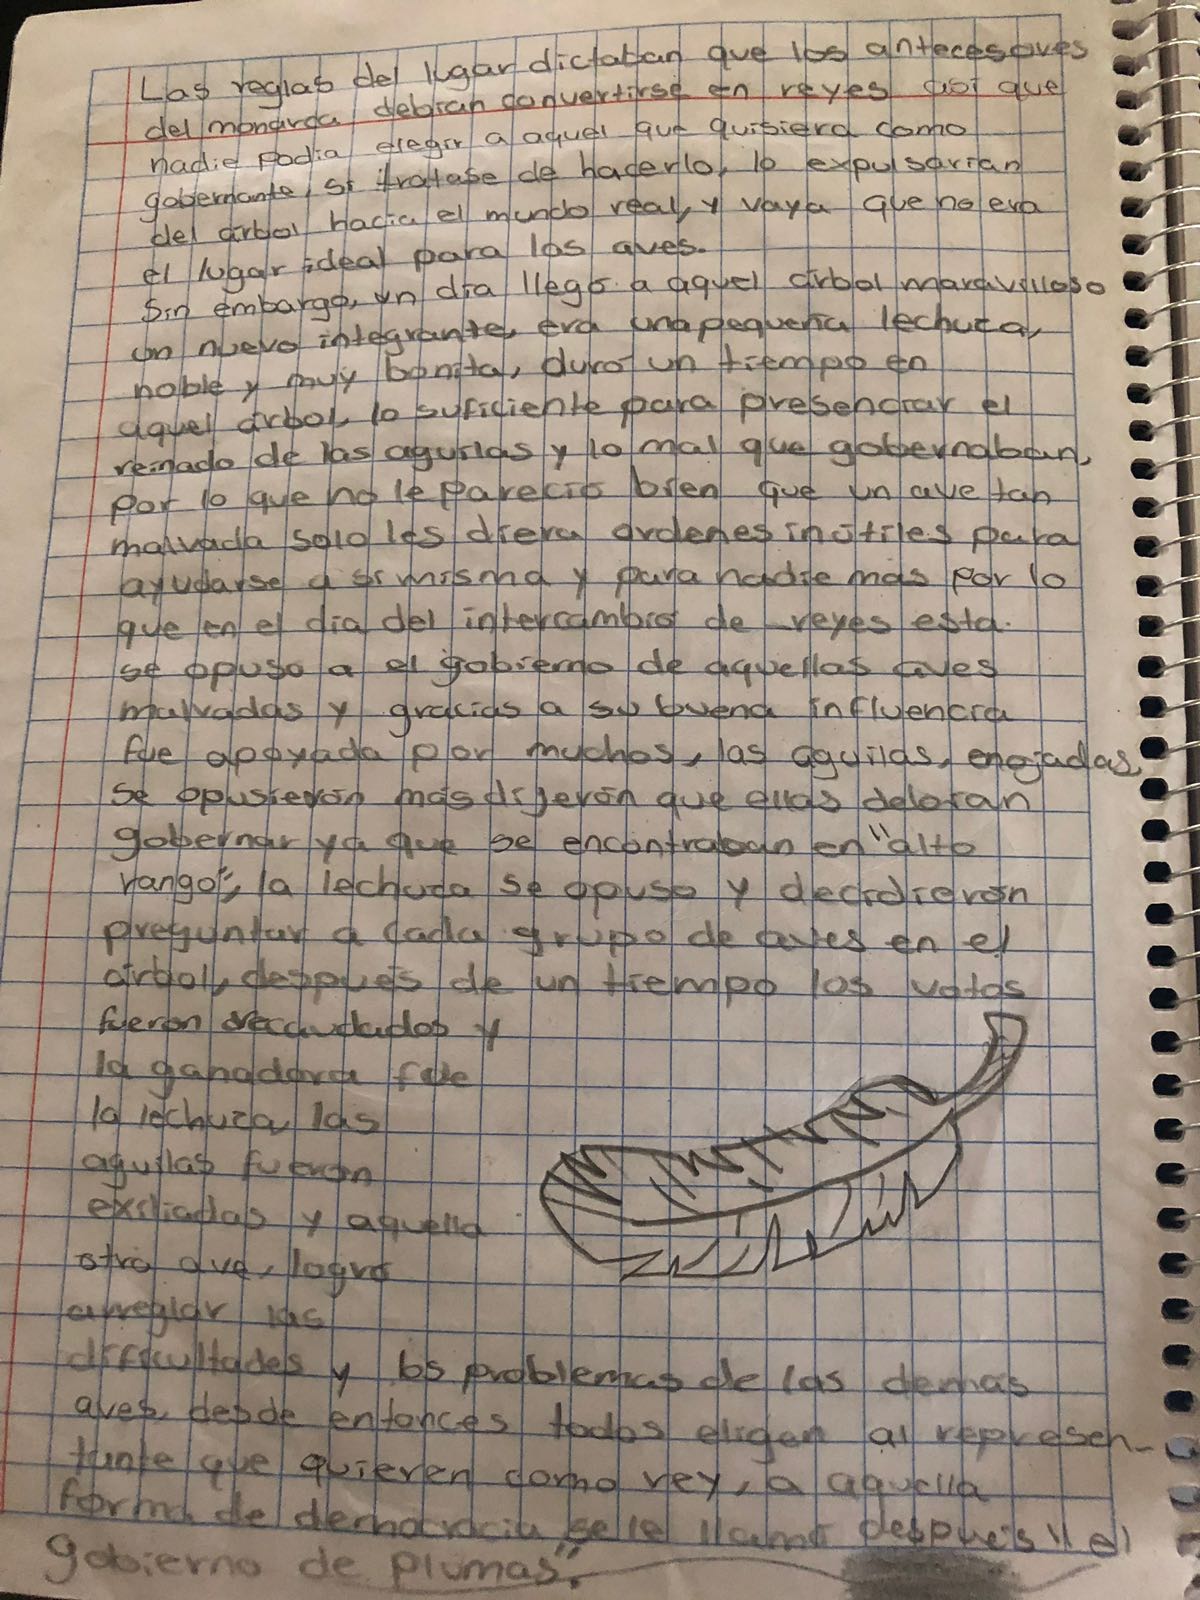 Las reglas del lugar dictaban que los antecesores
del monarca debian convertirse en reyes asi que
nadie podia elegir a aquel que quisiera como
gobernante, si tratase de hacerlo, lo expulsarian
del árbol hacia el mundo real, y vaya que no era
el lugar ideal para las aves.
Sin embargo, un dia llegó a aquel árbol maravilloso
un nuevo integrante, era una pequeña lechuza,
noble y muy bonita, duró un tiempo en
aquel árbol, lo suficiente para presenciar el
reinado de las aguilas y lo mal que gobernaban,
por lo que no le pareció bien que un ave tan
malvada solo les diera ordenes inútiles para
ayudarse a si misma y para nadie mas por lo
que en el dia del intercambio de reyes esta
se opuso a el gobierno de aquellas aves
malvadas y gracias a su buena influencia
fue apoyada por muchos, las aguilas, enojadas,
se opusierón más dijerón que ellas debian
gobernar ya que se encontraban en "alto
rango", la lechuza se opuso y decidierón
preguntar a cada grupo de aves en el
árbol, después de un tiempo los votos
fueron recaudados y
la ganadora fue
la lechuza, las
aguilas fueron
exiliadas y aquella
otra ave, logró
arreglar las
dificultades y los problemas de las demás
aves, desde entonces todos eligen al represen-
tante que quieren como rey, a aquella
forma de democracia se le llamó después "el
gobierno de plumas".